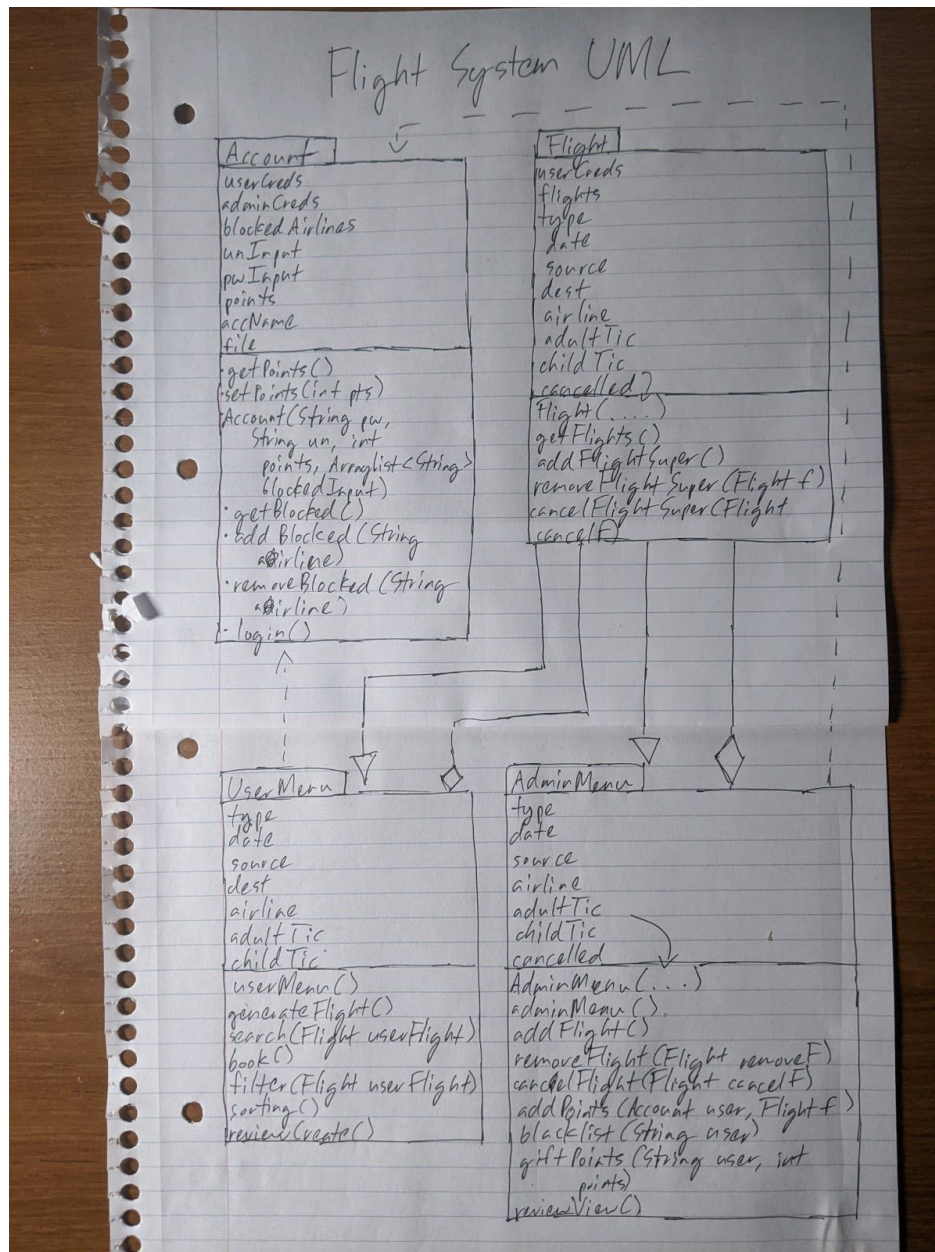 Flight System UML
Account
userCreds
adminCreds
blockedAirlines
unInput
pwInput
points
accName
file
·getPoints()
·setPoints(int pts)
Account(String pw,
String un, int
points, Arraylist<String>
blockedInput)
·getBlocked()
·add Blocked(String
airline)
·removeBlocked(String
airline)
·login()
Flight
userCreds
flights
type
date
source
dest
airline
adultTic
childTic
cancelled
Flight(....)
getFlights()
addFlightSuper()
removeFlightSuper(Flight f)
cancelFlightSuper(Flight
cancelF)
UserMenu
type
date
source
dest
airline
adultTic
childTic
userMenu()
generateFlight()
search(Flight userFlight)
book()
filter(Flight userFlight)
sorting()
reviewCreate()
AdminMenu
type
date
source
airline
adultTic
childTic
cancelled
AdminMenu(...)
adminMenu()
addFlight()
removeFlight(Flight removeF)
cancelFlight(Flight cancelF)
addPoints(Account user, Flight f)
blacklist(String user)
giftPoints(String user, int
points)
reviewView()